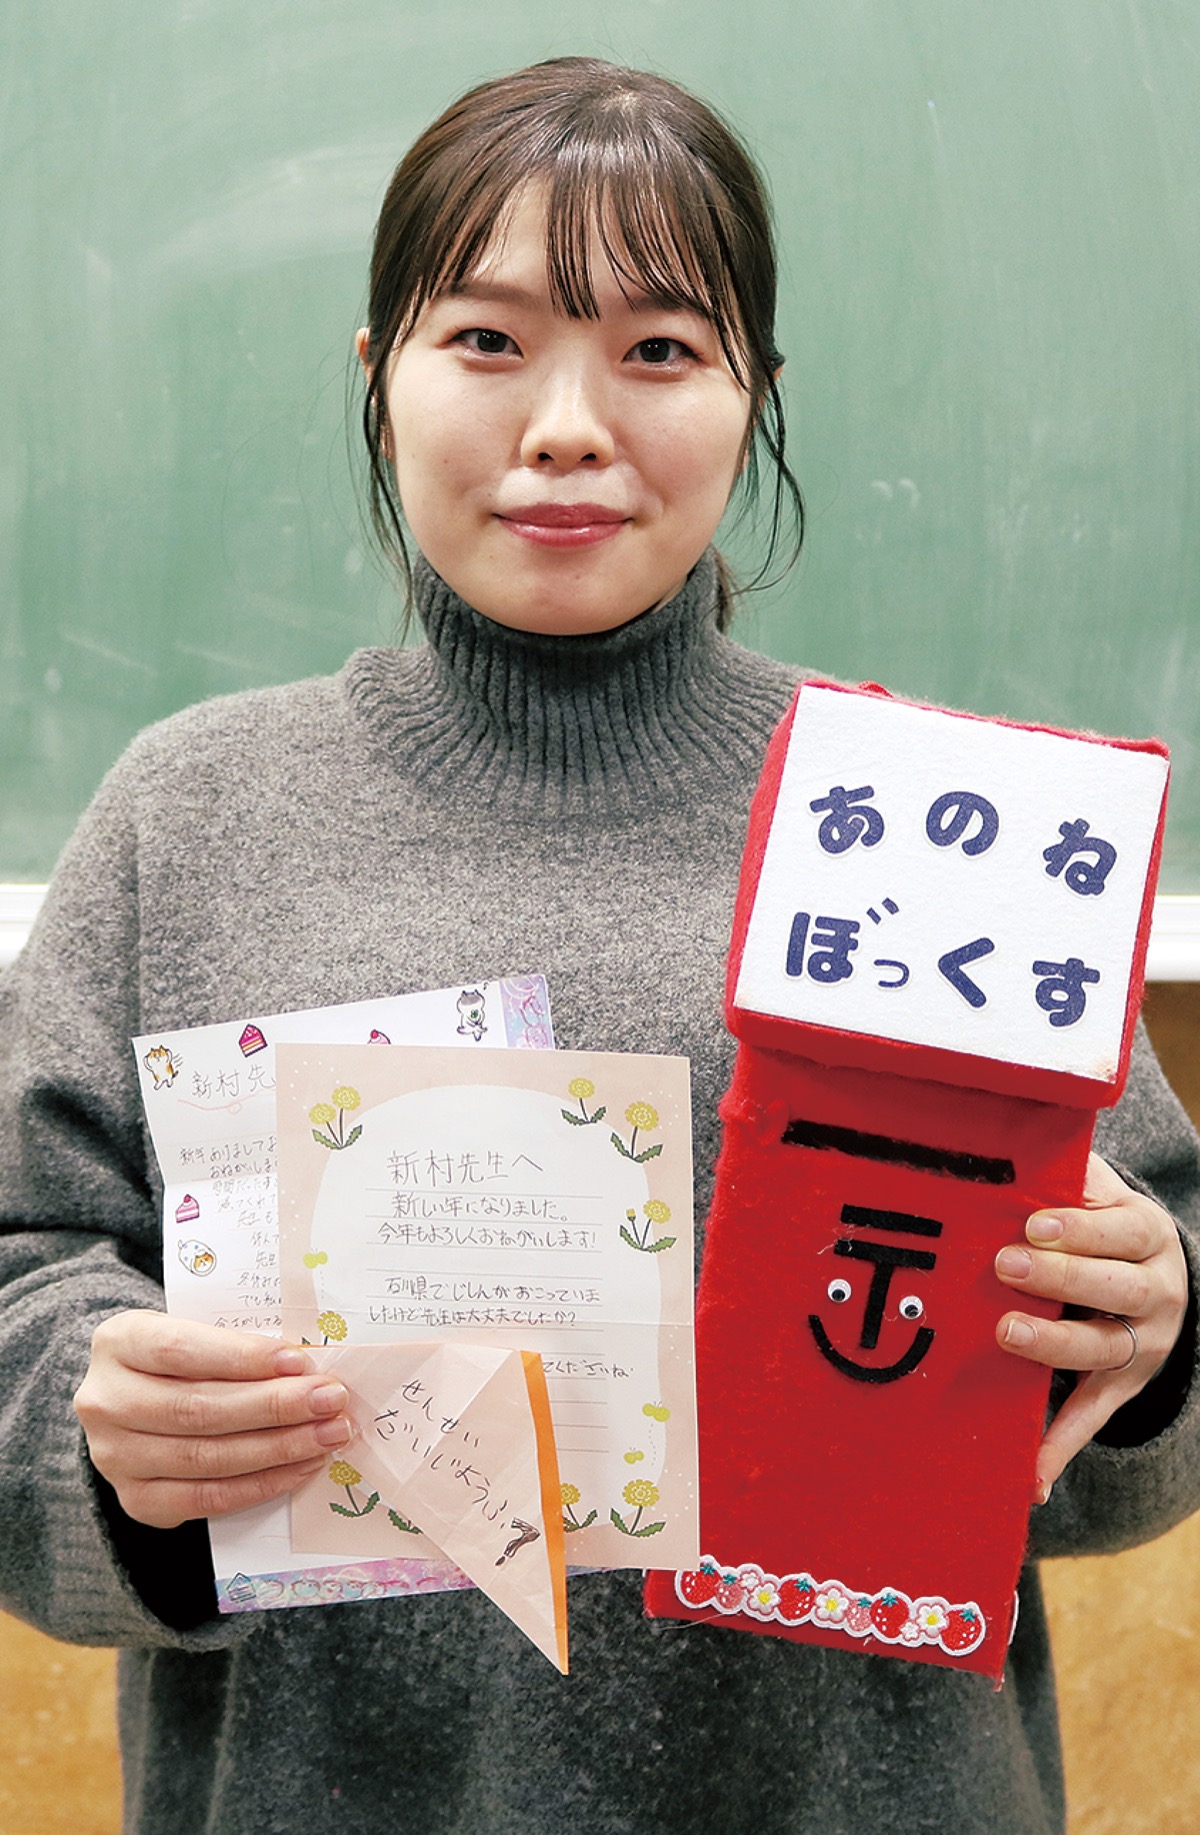 あのね
ぼっくす
〒
新村先
新年ありまして
おねがいしま
新村先生へ
新しい年になりました。
今年もよろしくおねがいします!
石川県でじしんがおこっていま
したけど先生は大丈夫でしたか?
てくださいね
せんせい
だいじょうふ?